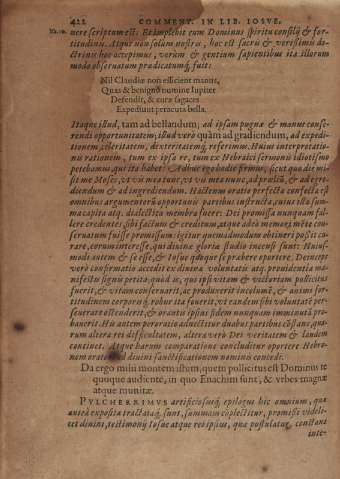 422 COMMENT. IN LIB. IOSVE.
nere scriptum est: Et implebit eum Dominus spiritu consilij & for-
titudinis. Atque non solum nostra, hoc est sacra & verissima do-
ctrina hoc accepimus, verum & gentium sapientibus ita illorum
modo obseruatum prædicatumq; fuit.
Nil Claudiæ non efficient manus,
Quas & benigno numine Iupiter
Defendit, & curæ sagaces
Expediunt per acuta bella.
Itaque istud, tam ad bellandum, ad ipsam pugnæ & manus conse-
rendi opportunitatem; istud vero quàm ad gradiendum, ad expedi-
tionem, celeritatem, dexteritatemq; referimus. Huius interpretatio-
nis rationem, tum ex ipsa re, tum ex Hebraici sermonis idiotismo
petebamus, qui ita habet: Adhuc ego hodie fortis, sicut quo die mi-
sit me Moses, vt vis mea tunc, vt vis mea nunc, ad prælium, & ad egre-
diendum & ad ingrediendum. Hactenus oratio perfecta confecta est
omnibus argumentorū opportunis partibus instructa, cuius ista sum-
ma capita atq; dialectica membra fuere: Dei promissa nunquam fal-
lere credentes; sibi factum & creditum, atque adeò memori mēte con-
seruatum fuisse promissum:
rare, eorum interesse, qui diuinæ gloriæ studio incensi sunt: Huius-
modi autem & se esse, & Iosue quoque se præbere oportere. Deinceps
verò confirmatio accedit ex diuina voluntatis atq; prouidentia ma-
nifesto signo petita, quòd is, qui ipsi vitam & vectariam pollicitus
fuerit, & vitam conseruarit, ac produxerit incolumē, & animi for-
titudinem corporisq; robur ita fouerit, vt eandem sibi voluntatē per-
seuerare ostenderit, & orantis ipsius fidem nunquam imminutā pro-
bauerit. His autem peroratio adijcitur duabus partibus cōstans, qua-
rum altera rei difficultatem, altera verò Dei veritatem & laudem
continet. Atque harum comparatione concluditur oportere Hebro-
nem oratori ad diuini sanctificationem nominis concedi.
Da ergo mihi montem istum, quem pollicitus est Dominus te
quoque audiente, in quo Enachim sunt, & vrbes magnæ
atque munitæ.
PVLCHERRIMVS artificiosusq; epilogus hic omnium, quæ
anteà exposita tractataq; sunt, summam cōplectitur, promissi videli-
cet diuini, testimonij Iosue atque rei ipsius, quæ postulatur, constans
inte-